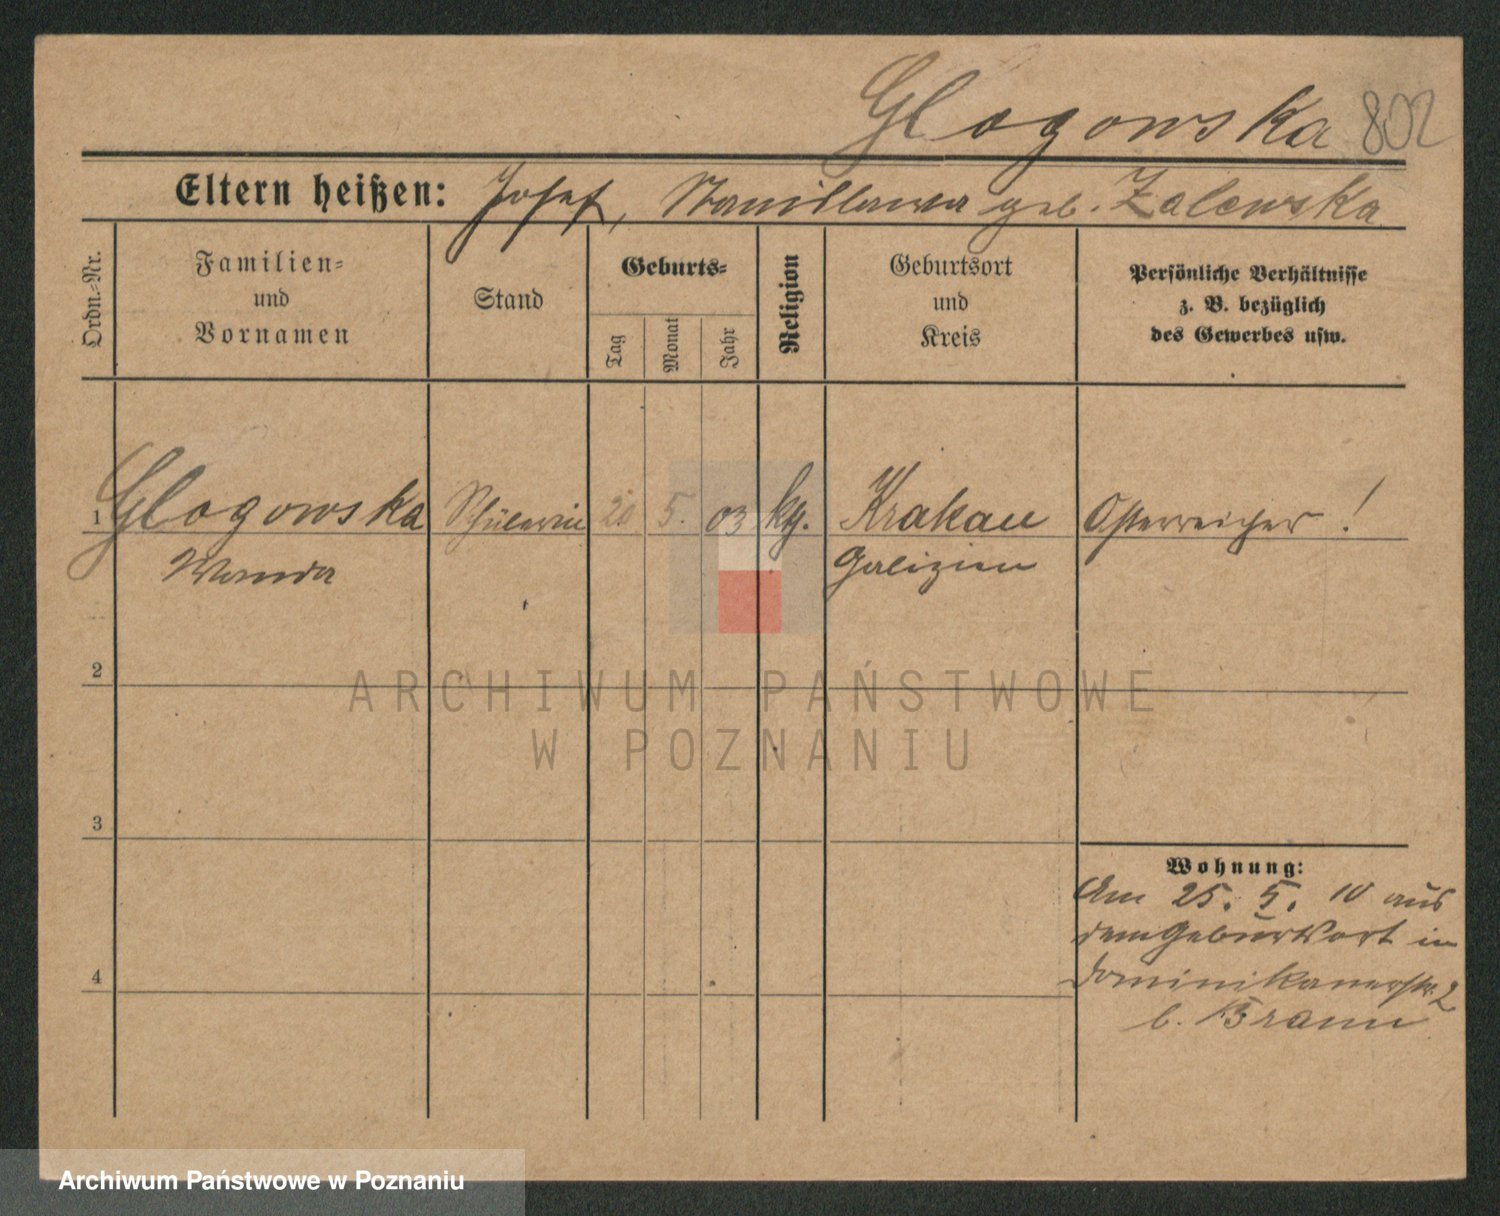 Glogowska 802
Eltern heißen: Josef, Stanislawa geb. Zalewska
Ordn.-Nr.
Familien-
und
Vornamen
Stand
Geburts-
Tag
Monat
Jahr
Religion
Geburtsort
und
Kreis
Persönliche Verhältnisse
z. B. bezüglich
des Gewerbes usw.
1 Glogowska Schülerin 20 5. 03 kth. Krakau Österreicher!
Wanda Galizien
2
ARCHIWUM PAŃSTWOWE
W POZNANIU
3
Wohnung:
Am 25. 5. 10 aus
dem Geburtsort in
Dominikanerstr. 2
b. Braun
4
Archiwum Państwowe w Poznaniu